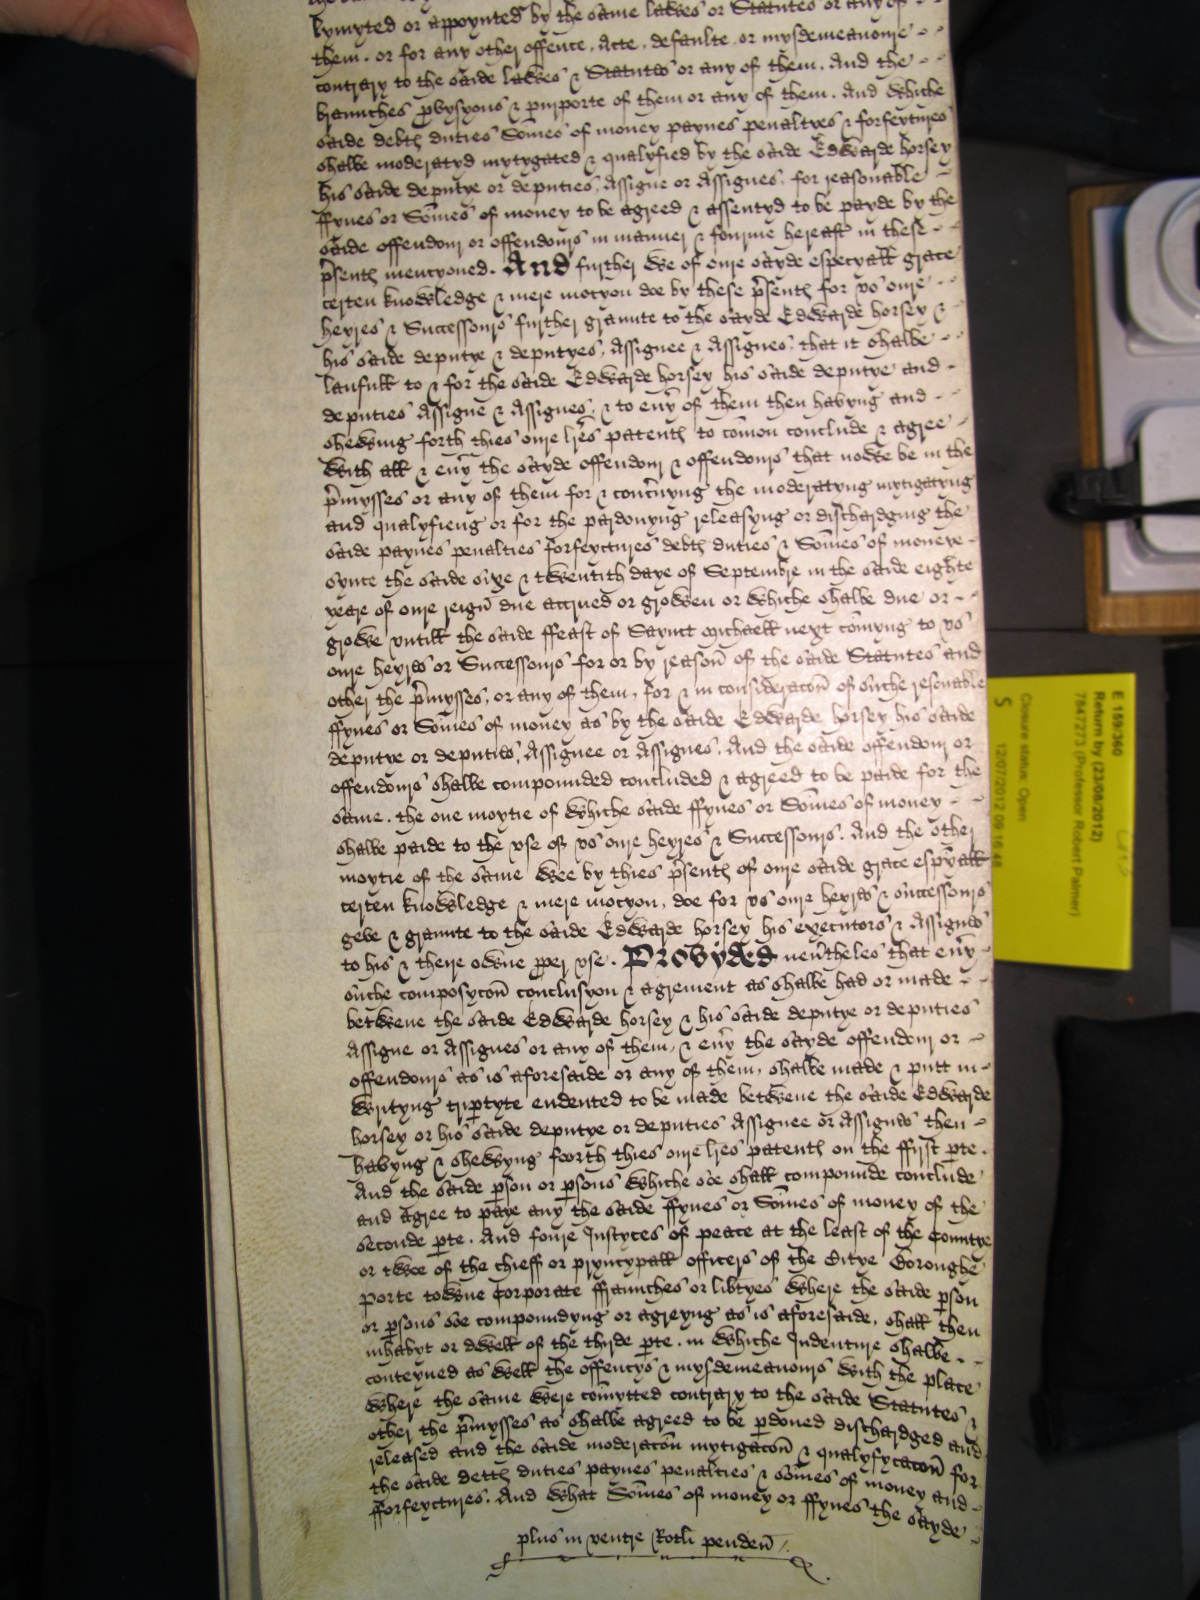 lymyted or appoynted by the same lawes or Statutes or any of
them. or for any other offence, Acte, defaulte or mysdemeanoure
contrary to the saide lawes & Statutes or any of them. And the
braunches p̱vysyons & purporte of them or any of them. And whiche
saide debtes duties Som̃es of money paynes penaltyes & forfeytures
shalbe moderatyd mytygated & qualyfied by the saide Edwarde horsey
his saide deputye or deputies, Assigne or Assignes, for reasonable
ffynes or Som̃es of money to be agreed & assentyd to be payde by the
saide offendour or offendours in manner & fourme hereaft̃ in these
p̃sentes mencyoned. And further we of oure sayde especyall grace
certen knowledge & mere mocyon doe by these p̃sentes for vs oure
heyres & Successours further graunte to the sayde Edwarde horsey &
his saide deputye & deputyes, Assignee & Assignes, that it shalbe
laufull to & for the saide Edwarde horsey his saide deputye and
deputies Assigne & Assignes, & to eũy of them then havyng and
shewing forth thies oure lr̃es patentes to com̃on conclude & agree
with all & eũy the sayde offendour & offendours that nowe be in the
p̃mysses or any of them for & conc̃nyng the moderatyng mytigatyng
and qualyfieng or for the pardonyng releasyng or dischardging the
saide paynes penalties forfeyctures debtes duties & Som̃es of moneye
synce the saide sixe & twentith daye of Septembre in the saide eighte
yeare of oure reigñ due accrued or growen or whiche shalbe due or
growe vntill the saide ffeast of Saynct Michaell next com̃yng to vs
oure heyres or Successours for or by reasoñ of the saide Statutes and
other the p̃mysses, or any of them, for & in consideracoñ of suche resonable
ffynes or Som̃es of money as by the saide Edwarde horsey his saide
deputye or deputies, Assignee or Assignes, And the saide offendour or
offendours shalbe compounded concluded & agreed to be paide for the
same. the one moytie of whiche saide ffynes or Som̃es of money
shalbe paide to the vse of vs oure heyres & Successours. And the other
moytie of the same wee by thies p̃sentes of oure saide grace esp̃yall
certen knowledge & mere mocyon, doe for vs oure heyres & successours
geve & graunte to the saide Edwarde horsey his executors & Assignes
to his & there owne p̱per vse. Provyded neũtheles that eũy
suche composycoñ conclusyon & agrement as shalbe had or made
betwene the saide Edwarde horsey & his saide deputye or deputies
Assigne or Assignes or any of them, & eũy the sayde offendour or
offendours as is aforesaide or any of them, shalbe made & putt in
writyng trip̱tyte endented to be made betwene the saide Edwarde
horsey or his saide deputye or deputies Assignee or Assignes then
havyng & shewyng foorth thies oure lr̃es patentes on the ffyrst p̱te.
And the saide p̱son or p̱sons whiche soe shall compounde conclude
and agree to paye any the saide ffynes or Som̃es of money of the
seconde p̱te. And foure Justyces of peace at the least of the Countye
or twoe of the chieff or pryncypall officers of the Citye Boroughe
porte towne Corporate ffraunches or lib̃tyes where the saide p̱son
or p̱sons soe compoundyng or agreyng as is aforesaide, shall then
inhabyt or dwell of the thyrde p̱te. in whiche Indenture shalbe
conteyned as well the offencys & mysdemeanours with the place
where the same were com̃ytted contrary to the saide Statutes &
other the p̃mysses as shalbe agreed to be p̱doned dischardged and
released and the saide moderacoñ mytigacoñ & qualyfycacoñ for
the saide dettes duties paynes penalties & som̃es of money and
fforfeyctures. And what Som̃es of money or ffynes the sayde
plus in ventre Rotl̃i pendeñ
E 159/360
Return by (23/08/2012)
7847273 (Professor Robert Palmer)
Closure status: Open
12/07/2012 09:16:48
S